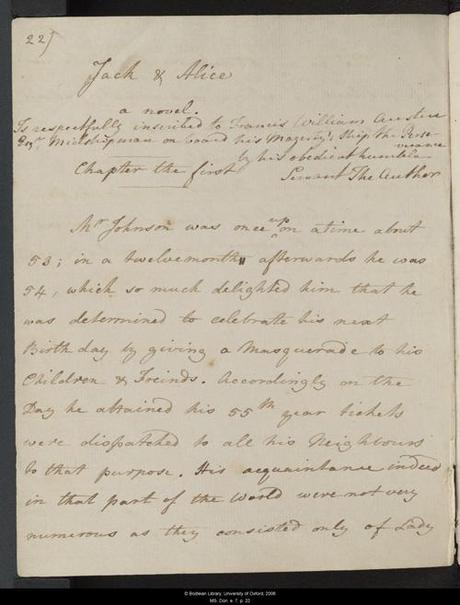 22)
Jack & Alice
a novel.
Is respectfully inscribed to Francis William Austen
Esqr Midshipman on board his Majesty's Ship the Perse-
verance
by his obedient humble
Chapter the first Servant The Author
Mr Johnson was once up on a time about
53; in a twelvemonth afterwards he was
54, which so much delighted him that he
was determined to celebrate his next
Birth day by giving a Masquerade to his
Children & Freinds. Accordingly on the
Day he attained his 55th year tickets
were dispatched to all his Neighbours
to that purpose. His acquaintance indeed
in that part of the World were not very
numerous as they consisted only of Lady
© Bodleian Library, University of Oxford, 2008
MS. Don. e. 7, p. 22